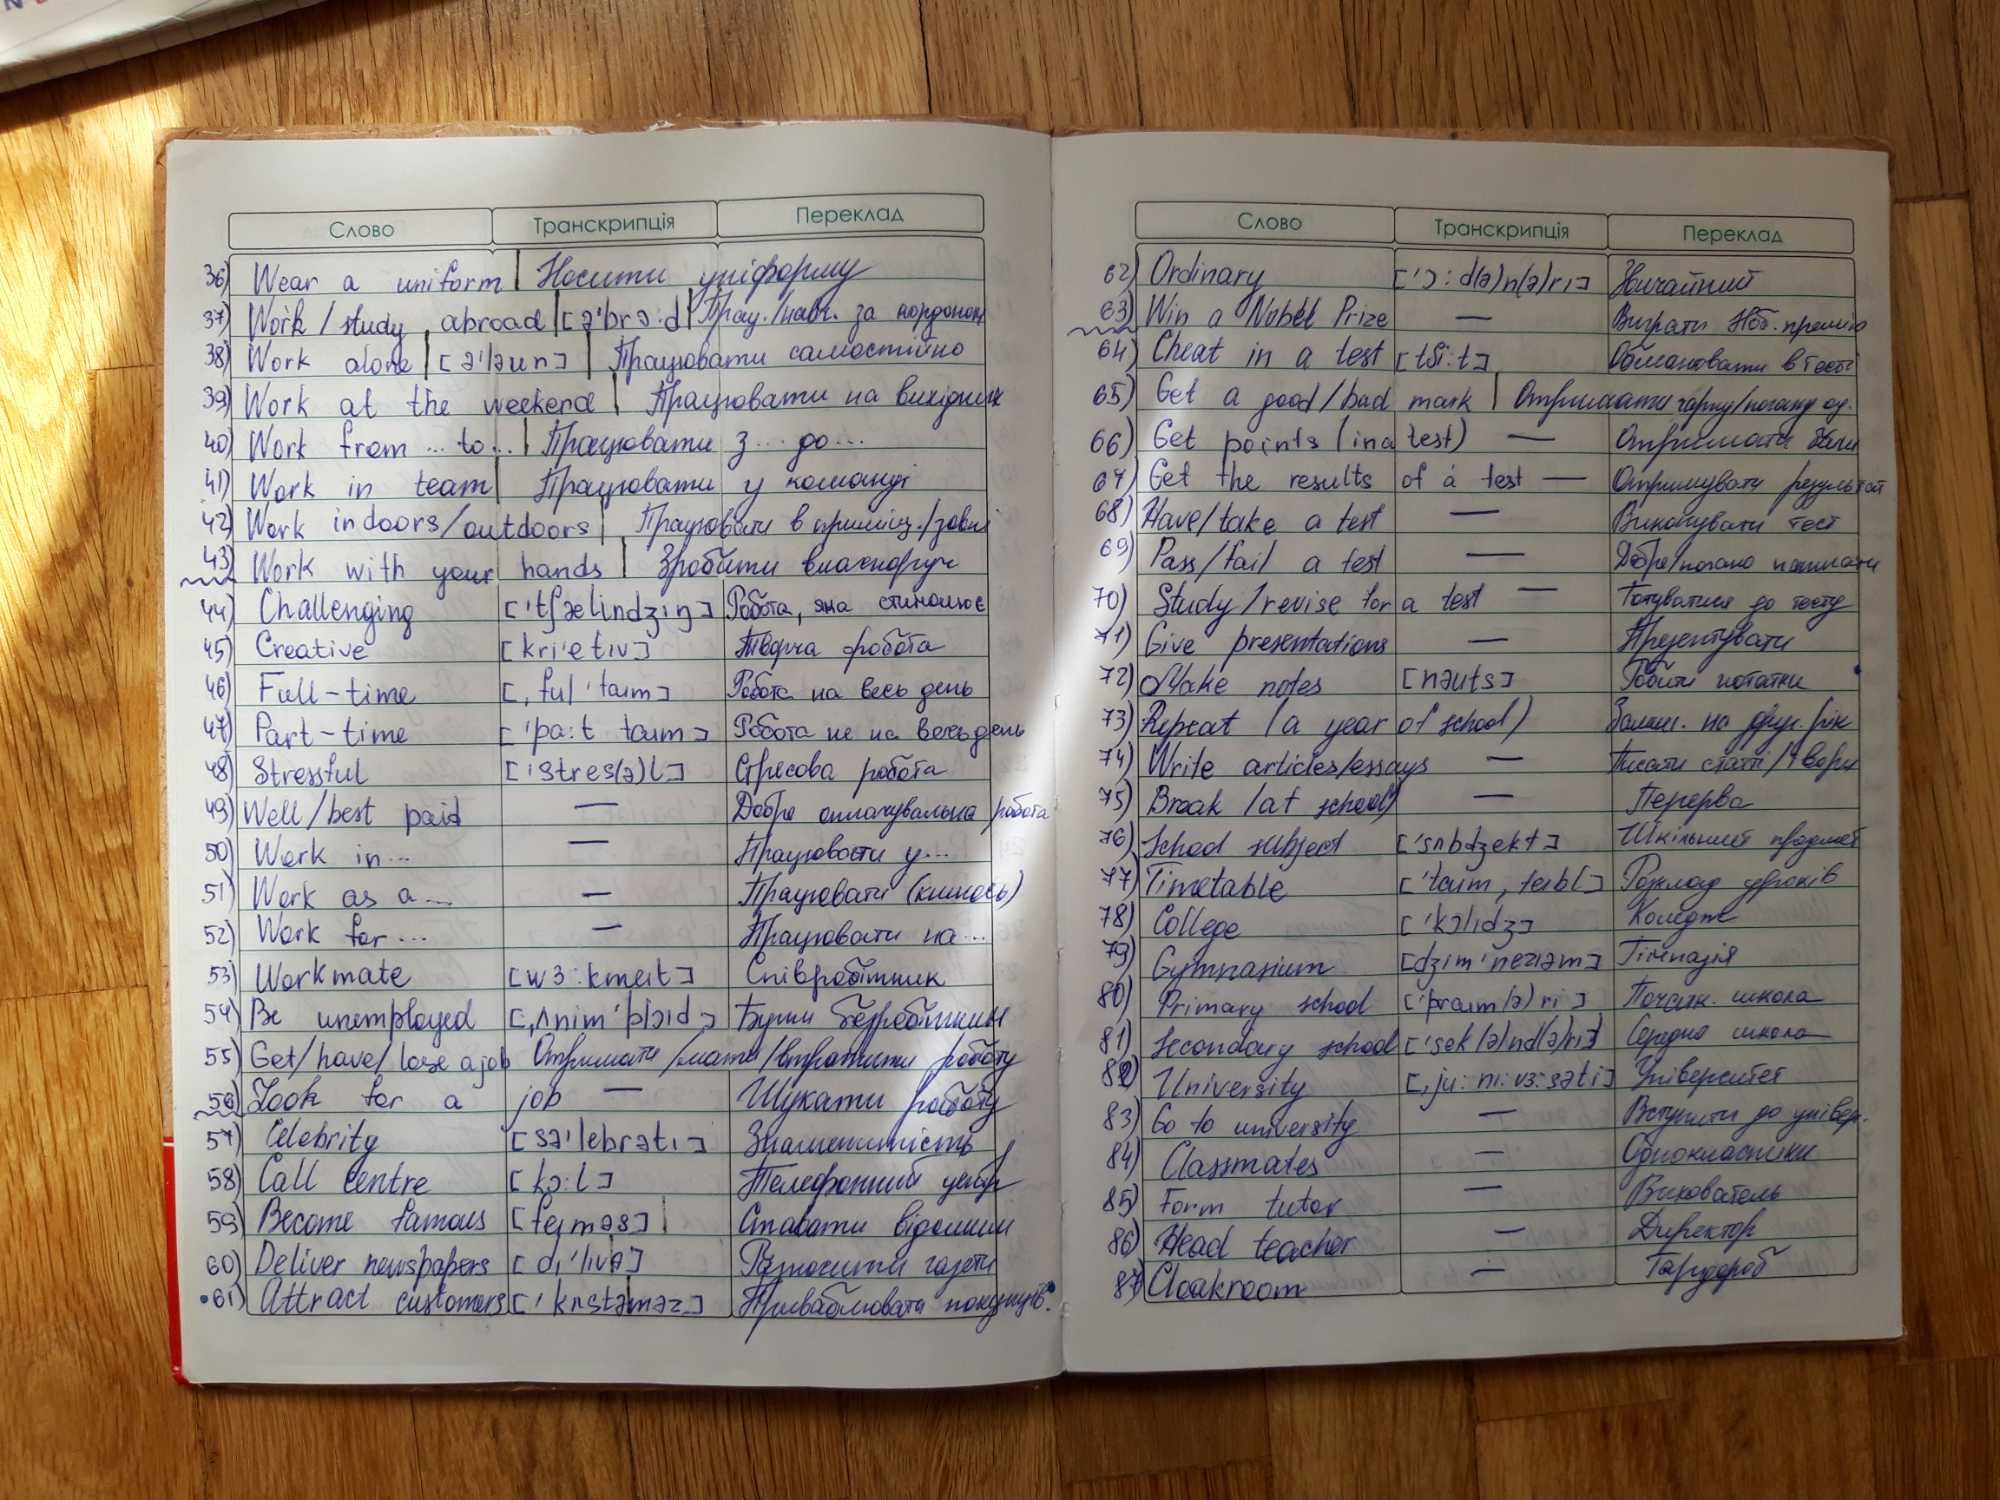 Слово Транскрипція Переклад
36) Wear a uniform | Носити уніформу
37) Work/study abroad | [ə'brɔ:d] | Прац./навч. за кордоном
38) Work alone | [ə'ləun] | Працювати самостійно
39) Work at the weekend | Працювати на вихідних
40) Work from ... to ... | Працювати з ... до ...
41) Work in team | Працювати у команді
42) Work indoors/outdoors | Працювати в приміщ./зовні
43) Work with your hands | Зробити власноруч
44) Challenging ['tʃælindʒıŋ] Робота, яка стимолює
45) Creative [kri'etıv] Творча робота
46) Full-time [,ful 'taım] Робота на весь день
47) Part-time ['pa:t taım] Робота не на весь день
48) Stressful ['stres(ə)l] Стресова робота
49) Well/best paid — Добре оплачувальна робота
50) Work in... — Працювати у...
51) Work as a... — Працювати (кимось)
52) Work for ... — Працювати на...
53) Workmate [wɜ:kmeıt] Співробітник
54) Be unemployed [,ʌnim'plɔıd] Бути безробітним
55) Get/have/lose a job Отримати/мати/втратити роботу
56) Look for a job — Шукати роботу
57) Celebrity [sə'lebrətı] Знаменитість
58) Call centre [kɔ:l] Телефонний центр
59) Become famous [feıməs] | Ставати відомим
60) Deliver newspapers [dı'lıvə] Розносити газети
61) Attract customers ['kʌstəməz] Приваблювати покупців.
Слово Транскрипція Переклад
62) Ordinary ['ɔ:d(ə)n(ə)rı] Звичайний
63) Win a Nobel Prize — Виграти Ноб. премію
64) Cheat in a test [tʃi:t] Обманювати в тесті
65) Get a good/bad mark | Отримати гарну/погану оц.
66) Get points (in a test) — Отримати бали
67) Get the results of a test — Отримувати результат
68) Have/take a test — Виконувати тест
69) Pass/fail a test — Добре/погано написати
70) Study/revise for a test — Готуватися до тесту
71) Give presentations — Презентувати
72) Make notes [nəuts] Робити нотатки
73) Repeat (a year of school) Залиш. на друг. рік
74) Write articles/essays — Писати статті/твори
75) Break (at school) — Перерва
76) School subject ['sʌbdʒekt] Шкільний предмет
77) Timetable ['taım,teıbl] Розклад уроків
78) College ['kɔlıdʒ] Коледж
79) Gymnasium [dʒim'neızıəm] Гімназія
80) Primary school ['praım(ə)ri] Початк. школа
81) Secondary school ['sek(ə)nd(ə)rı] Середня школа
82) University [,ju:nı:vɜ:səti] Університет
83) Go to university — Вступити до універ.
84) Classmates — Однокласники
85) Form tutor — Вихователь
86) Head teacher — Директор
87) Cloakroom — Гардероб